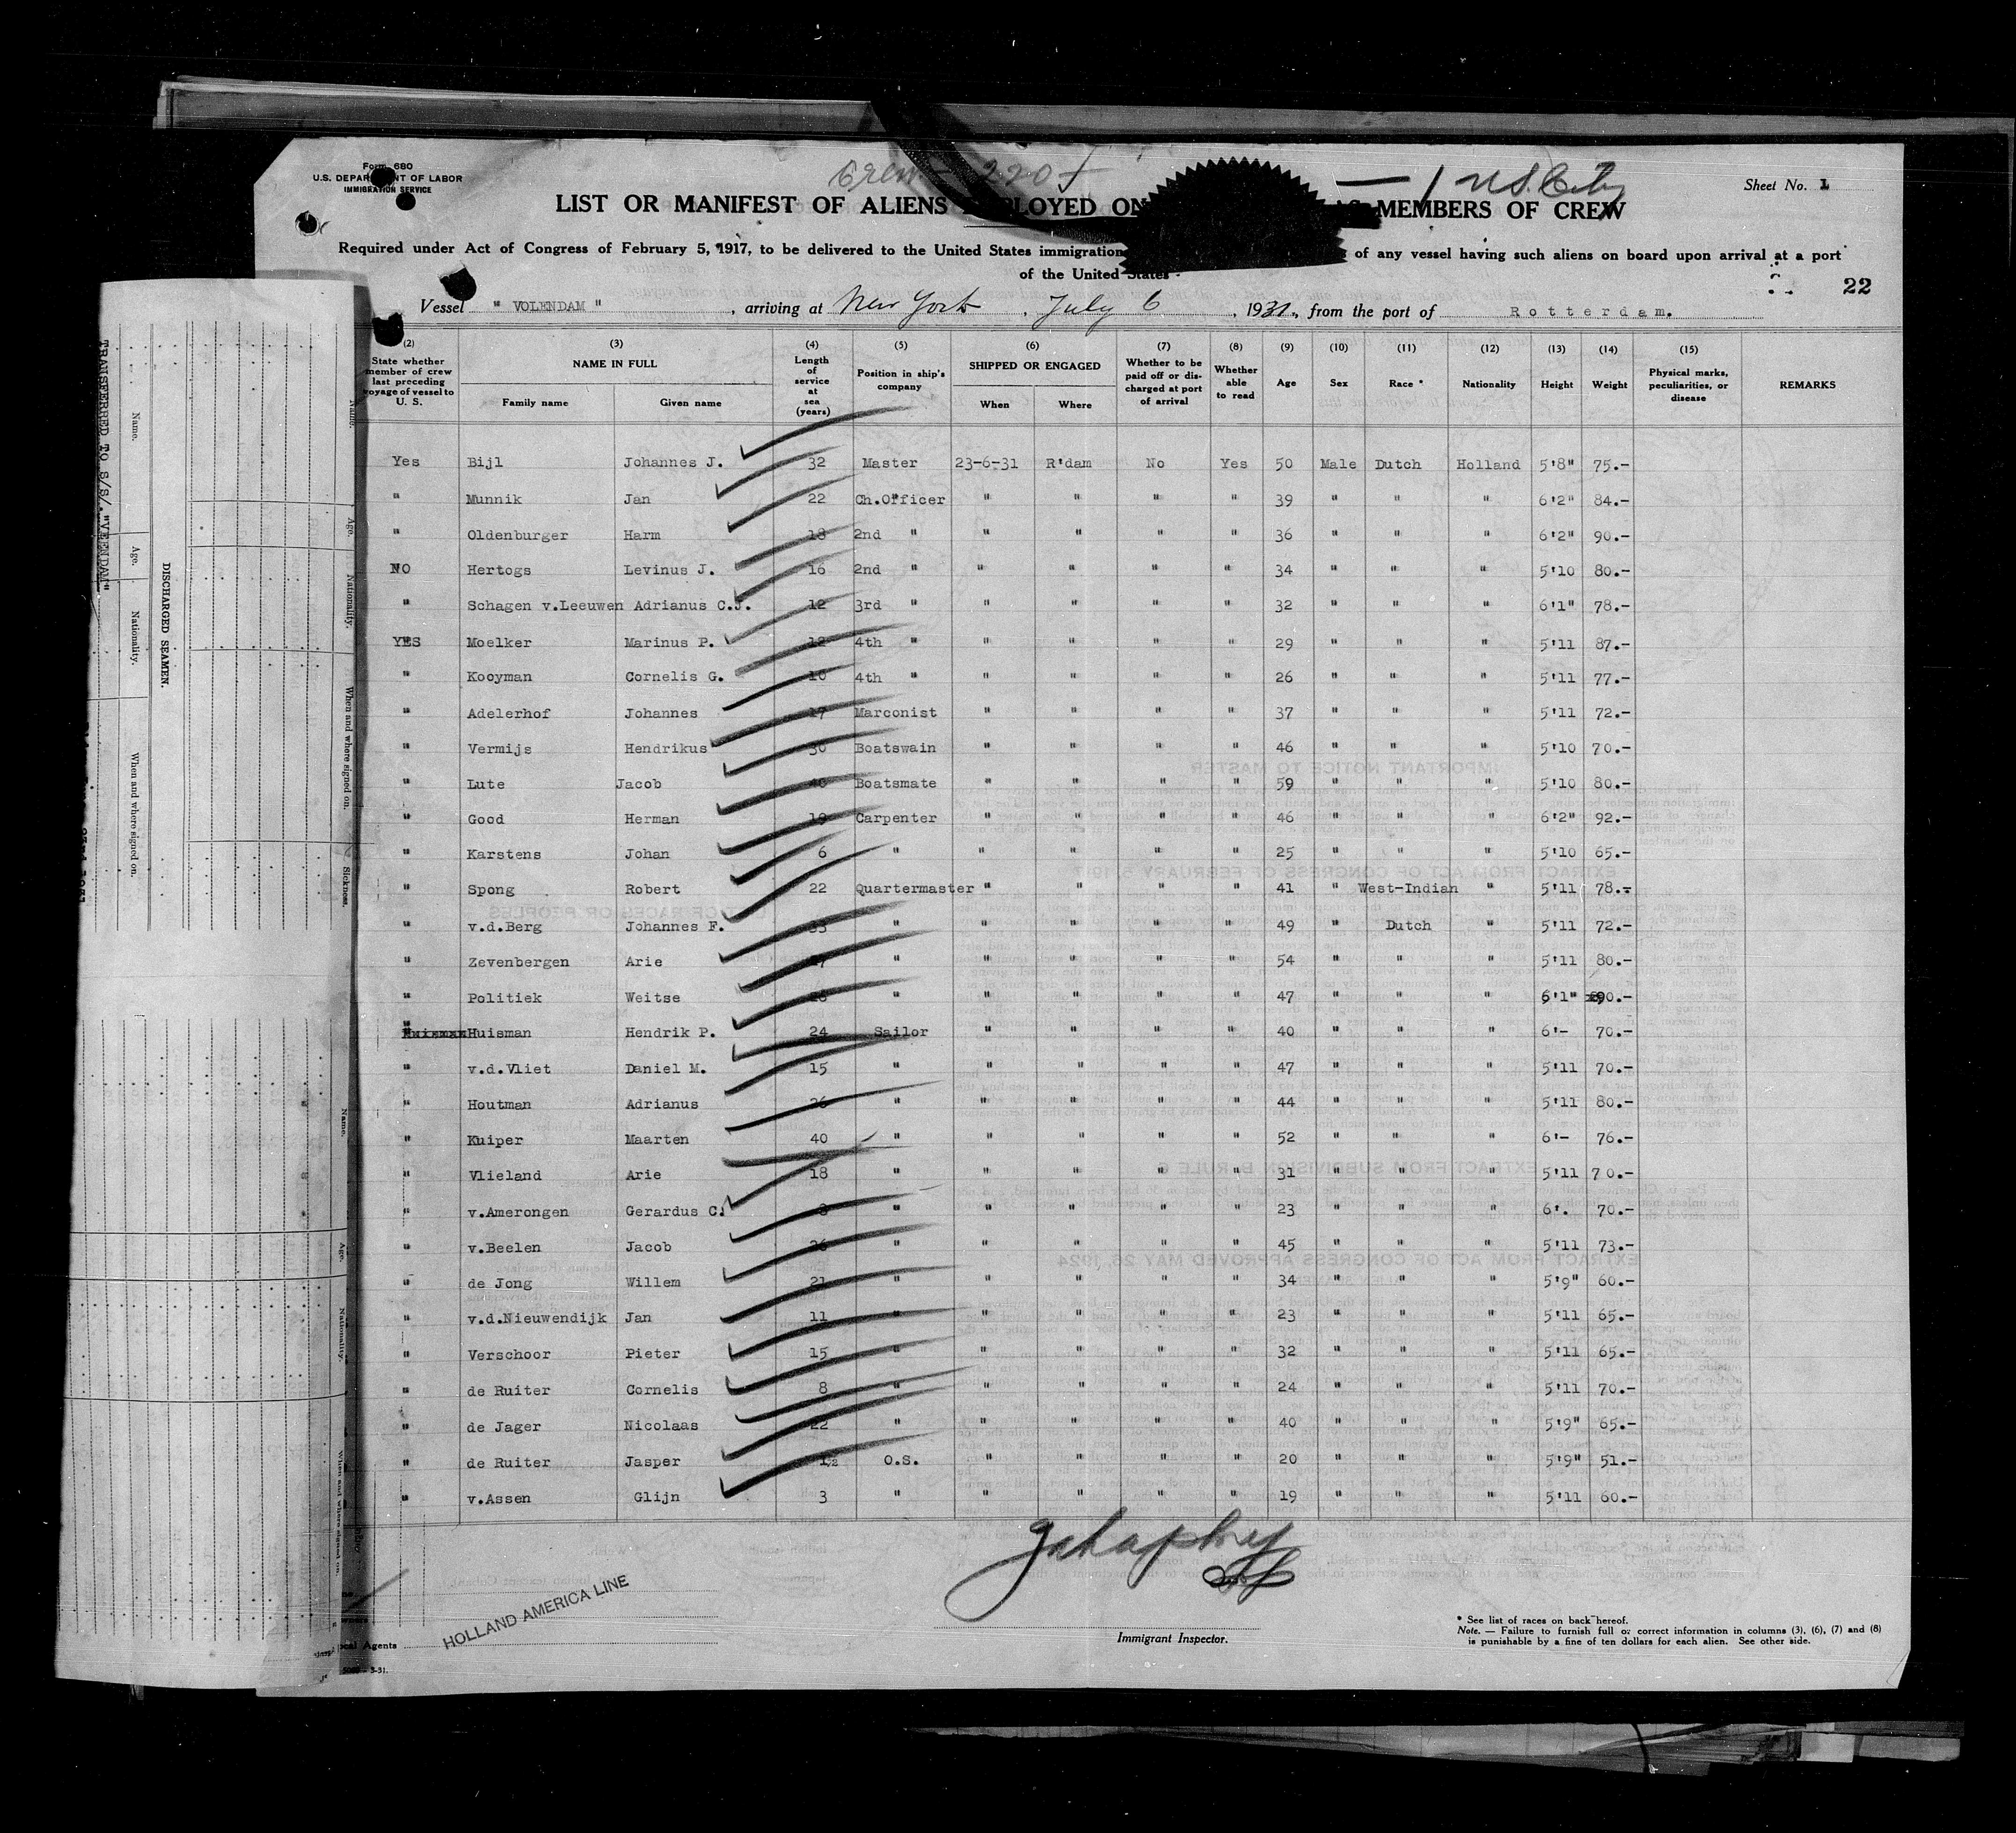 Form 680
U.S. DEPARTMENT OF LABOR
IMMIGRATION SERVICE
Crew - 220
1 U.S. City
Sheet No. 1
LIST OR MANIFEST OF ALIENS EMPLOYED ON AS MEMBERS OF CREW
Required under Act of Congress of February 5, 1917, to be delivered to the United States immigration of any vessel having such aliens on board upon arrival at a port
of the United States
22
Vessel "VOLENDAM", arriving at New York, July 6, 1931, from the port of Rotterdam.
(2) (3) (4) (5) (6) (7) (8) (9) (10) (11) (12) (13) (14) (15)
State whether member of crew last preceding voyage of vessel to U. S. | NAME IN FULL | Family name | Given name | Length of service at sea (years) | Position in ship's company | SHIPPED OR ENGAGED | When | Where | Whether to be paid off or discharged at port of arrival | Whether able to read | Age | Sex | Race * | Nationality | Height | Weight | Physical marks, peculiarities, or disease | REMARKS
Yes Bijl Johannes J. 32 Master 23-6-31 R'dam No Yes 50 Male Dutch Holland 5'8" 75.-
" Munnik Jan 22 Ch.Officer " " " " 39 " " " 6'2" 84.-
" Oldenburger Harm 18 2nd " " " " " 36 " " " 6'2" 90.-
NO Hertogs Levinus J. 16 2nd " " " " " 34 " " " 5'10 80.-
" Schagen v.Leeuwen Adrianus C.J. 12 3rd " " " " " 32 " " " 6'1" 78.-
YES Moelker Marinus P. 12 4th " " " " " 29 " " " 5'11 87.-
" Kooyman Cornelis G. 10 4th " " " " " 26 " " " 5'11 77.-
" Adelerhof Johannes 17 Marconist " " " " 37 " " " 5'11 72.-
" Vermijs Hendrikus 30 Boatswain " " " " 46 " " " 5'10 70.-
" Lute Jacob 46 Boatsmate " " " " 59 " " " 5'10 80.-
" Good Herman 19 Carpenter " " " " 46 " " " 6'2" 92.-
" Karstens Johan 6 " " " " " 25 " " " 5'10 65.-
" Spong Robert 22 Quartermaster " " " " 41 " West-Indian " 5'11 78.-
" v.d.Berg Johannes F. 33 " " " " " 49 " Dutch " 5'11 72.-
" Zevenbergen Arie " " " " " 54 " " " 5'11 80.-
" Politiek Weitse " " " " " 47 " " " 6'1" 90.-
" Huisman Hendrik P. 24 Sailor " " " " 40 " " " 6'- 70.-
" v.d.Vliet Daniel M. 15 " " " " " 47 " " " 5'11 70.-
" Houtman Adrianus 26 " " " " " 44 " " " 5'11 80.-
" Kuiper Maarten 40 " " " " " 52 " " " 6'- 76.-
" Vlieland Arie 18 " " " " " 31 " " " 5'11 70.-
" v.Amerongen Gerardus C. 8 " " " " " 23 " " " 6'. 70.-
" v.Beelen Jacob 26 " " " " " 45 " " " 5'11 73.-
" de Jong Willem 21 " " " " " 34 " " " 5'9" 60.-
" v.d.Nieuwendijk Jan 11 " " " " " 23 " " " 5'11 65.-
" Verschoor Pieter 15 " " " " " 32 " " " 5'11 65.-
" de Ruiter Cornelis 8 " " " " " 24 " " " 5'11 70.-
" de Jager Nicolaas 22 " " " " " 40 " " " 5'9" 65.-
" de Ruiter Jasper 1½ O.S. " " " " 20 " " " 5'9" 51.-
" v.Assen Glijn 3 " " " " " 19 " " " 5'11 60.-
HOLLAND AMERICA LINE
Local Agents
Immigrant Inspector.
* See list of races on back hereof.
Note. — Failure to furnish full or correct information in columns (3), (6), (7) and (8)
is punishable by a fine of ten dollars for each alien. See other side.
TRANSFERRED TO S/S. "VEENDAM"
DISCHARGED SEAMEN.
Name. Age. Nationality. When and where signed on.
Name. Age. Nationality. When and where signed on. Sickness.
Name. Age. Nationality. When and where signed on.